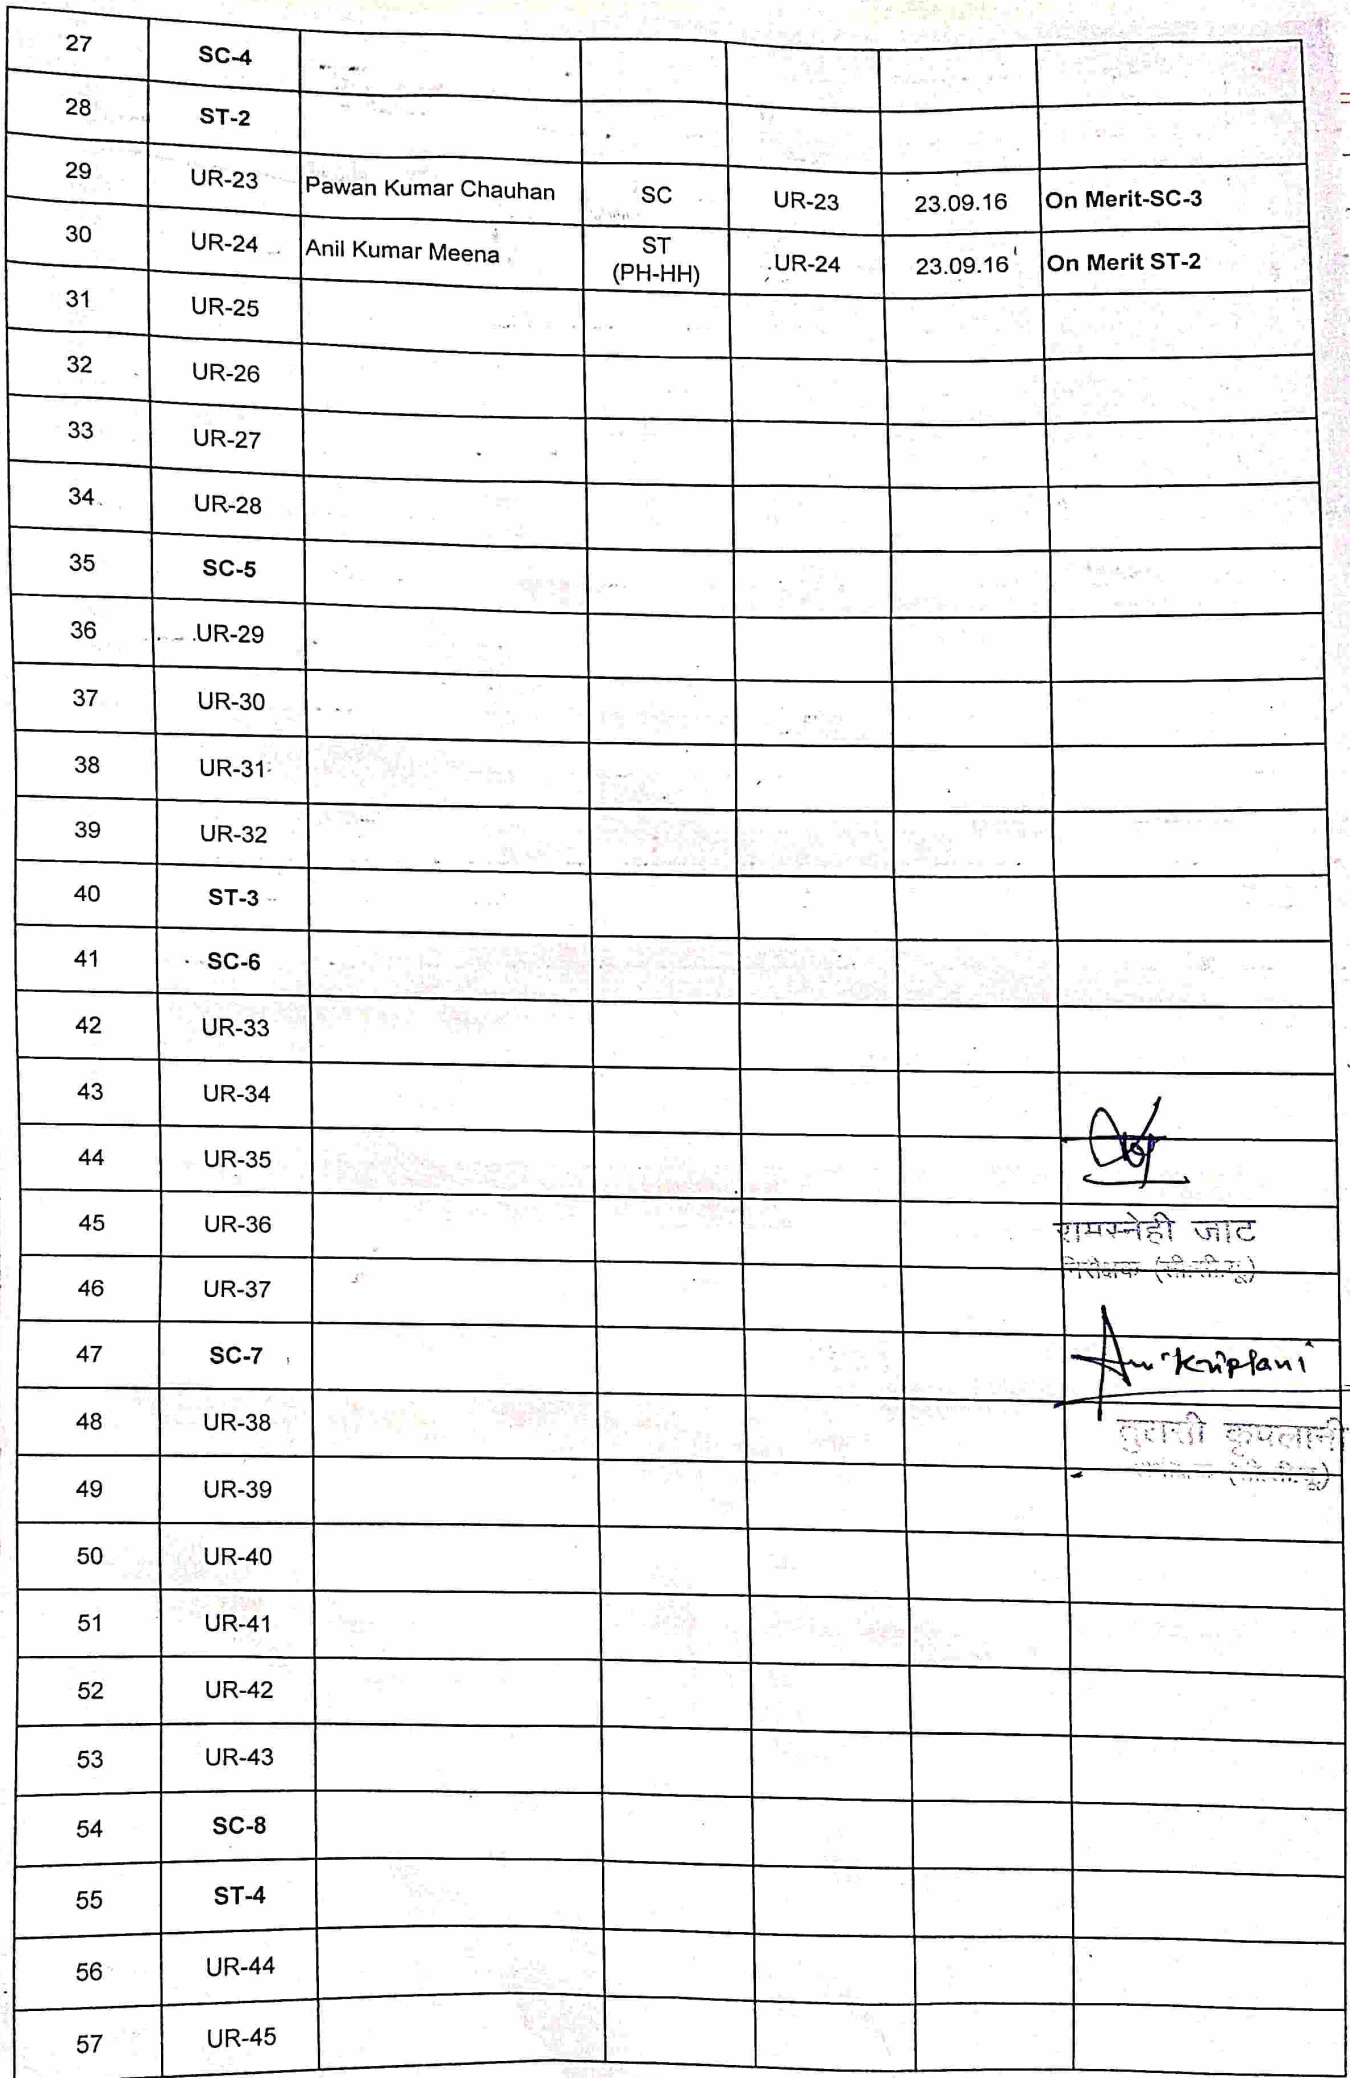 27 SC-4
28 ST-2
29 UR-23 Pawan Kumar Chauhan SC UR-23 23.09.16 On Merit-SC-3
30 UR-24 Anil Kumar Meena ST (PH-HH) UR-24 23.09.16 On Merit ST-2
31 UR-25
32 UR-26
33 UR-27
34 UR-28
35 SC-5
36 UR-29
37 UR-30
38 UR-31
39 UR-32
40 ST-3
41 SC-6
42 UR-33
43 UR-34
44 UR-35
45 UR-36 रामस्नेही जाट
46 UR-37 निरीक्षक (सी.सी.यू)
47 SC-7 Kriplani
48 UR-38 तुलसी कृपलानी
49 UR-39
50 UR-40
51 UR-41
52 UR-42
53 UR-43
54 SC-8
55 ST-4
56 UR-44
57 UR-45